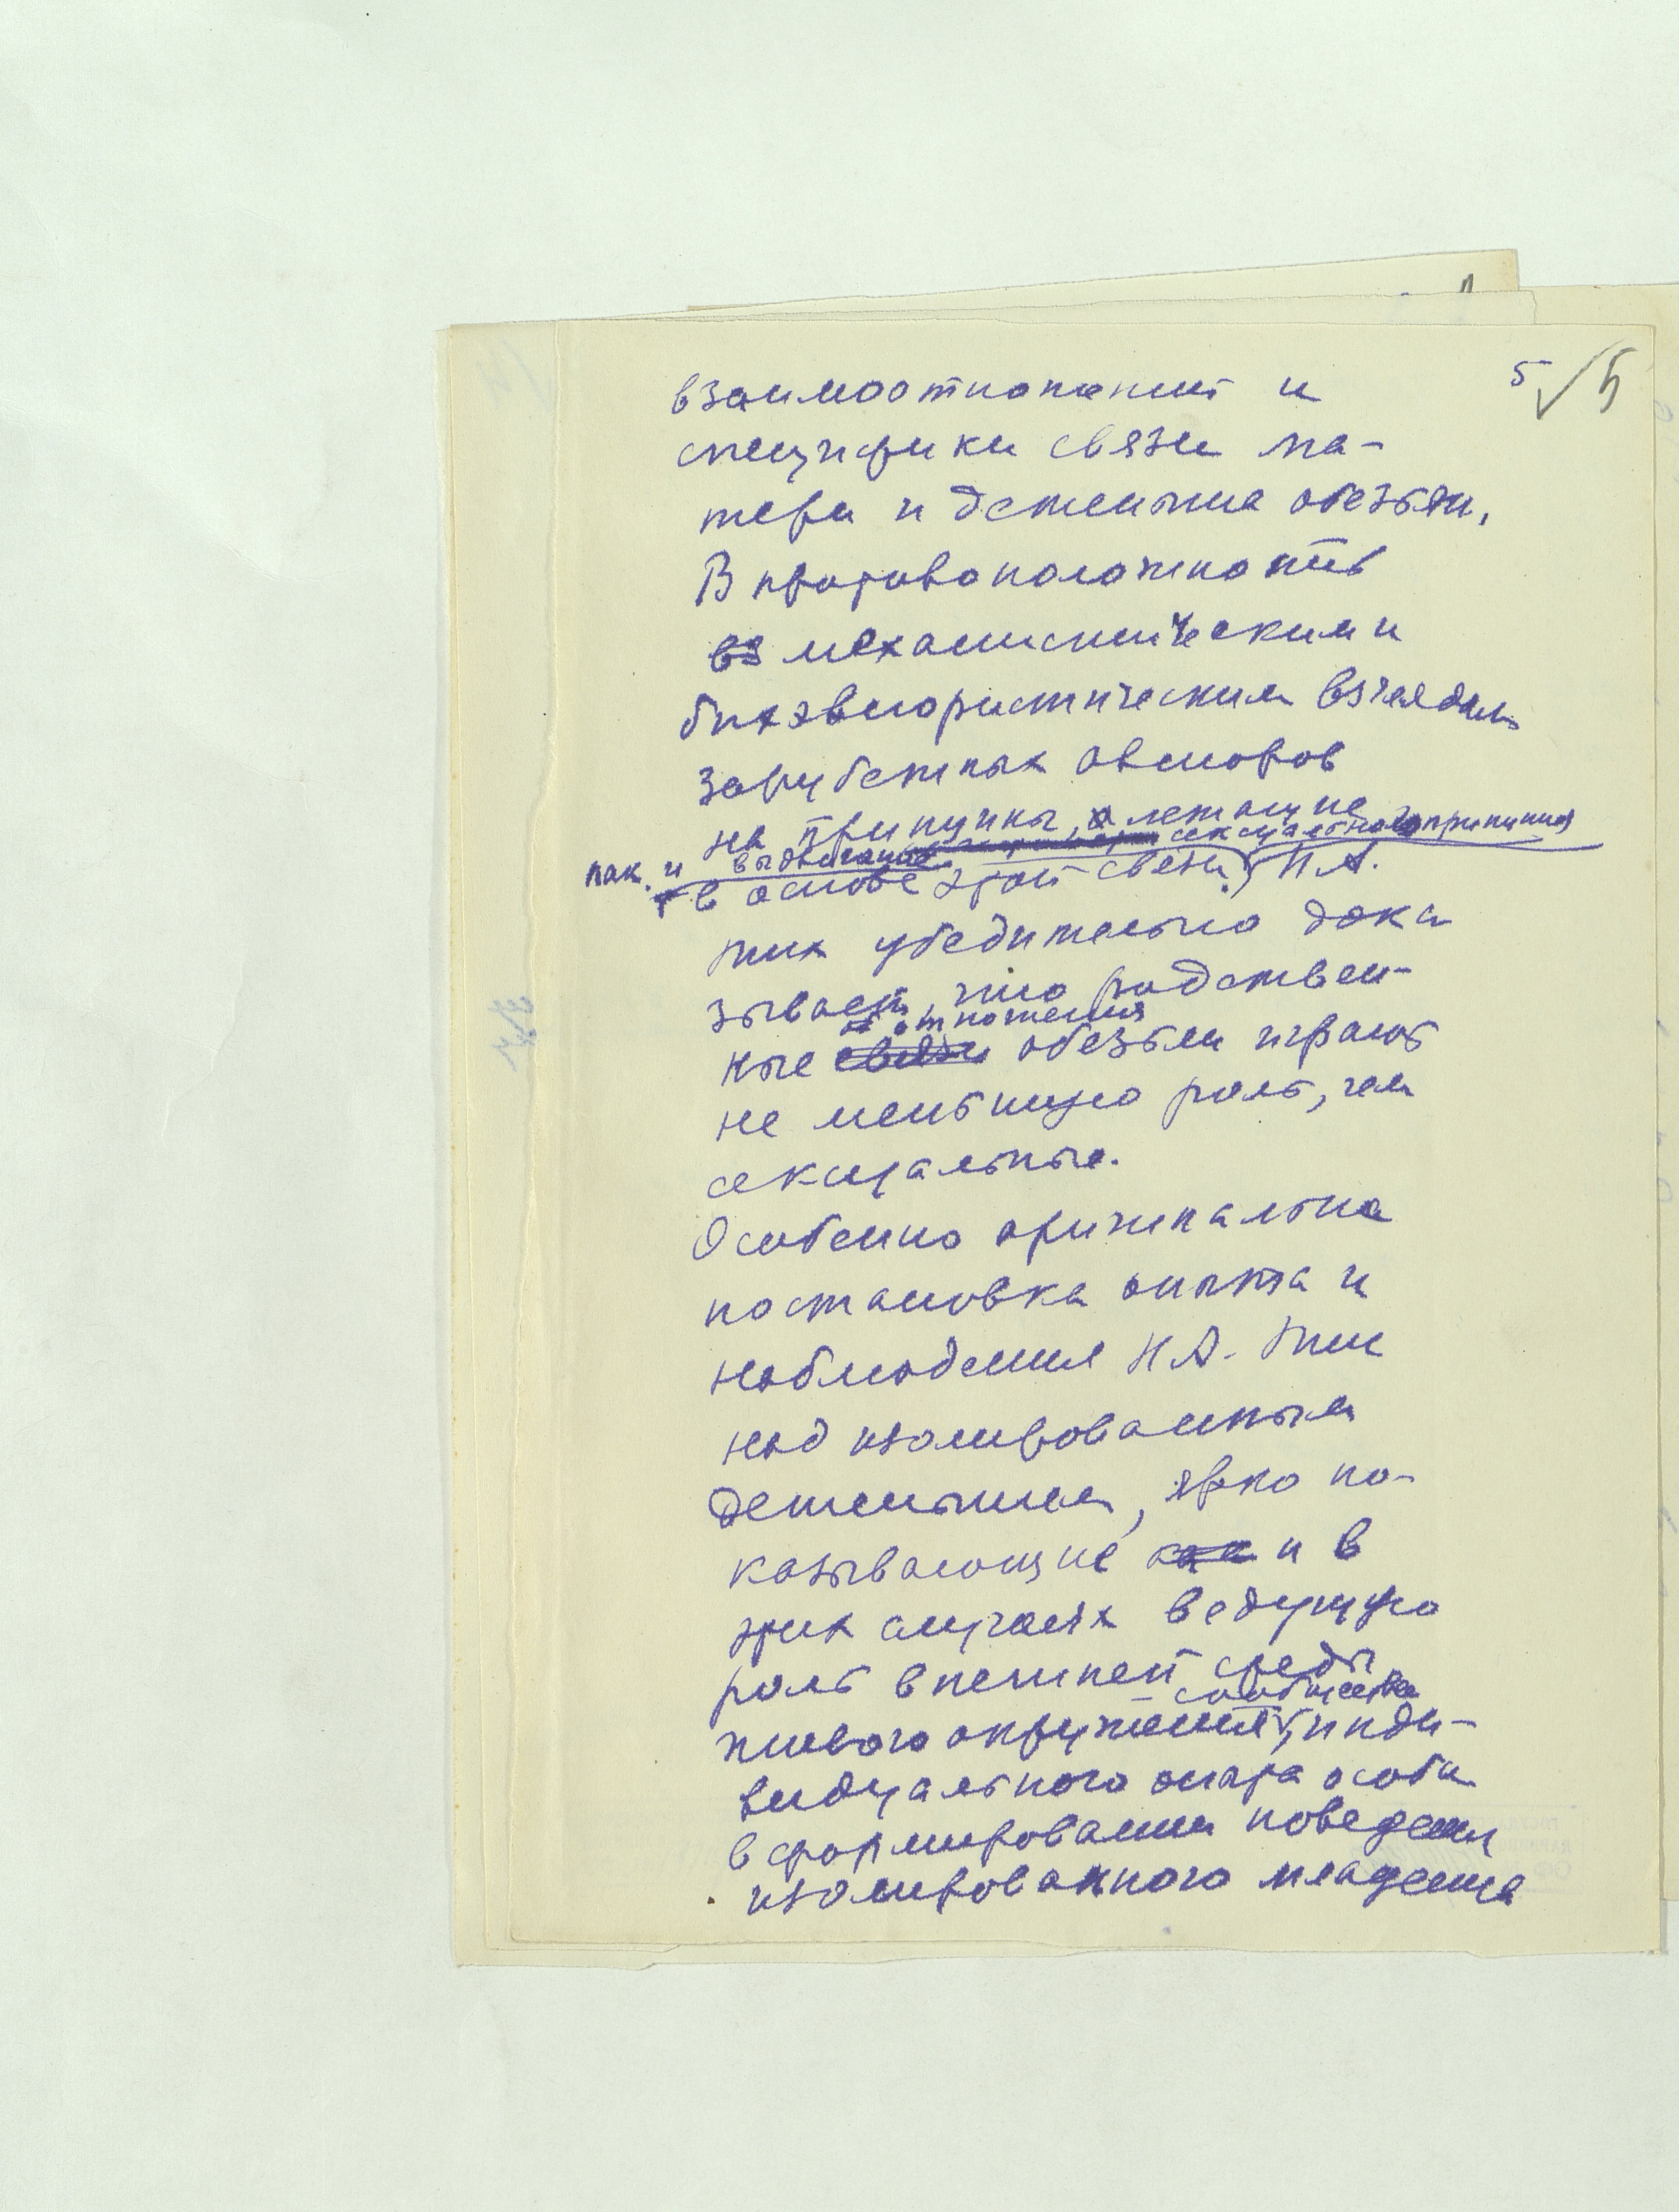 5 √ 5
взаимоотношений и
специфики связи ма-
тери и детеныша обезьян,
В противоположность
вз механистическим и
бихэвиористическим взглядам
зарубежных авторов
на причины, лежащие
сексуального принципа
как и выдвигание
в основе этой связи, Н.А.
Тих убедительно дока
зывает, что родствен-
отношения
ные связи обезьян играют
не меньшую роль, чем
сексуальные.
Особенно оригинальна
постановка опыта и
наблюдения Н.А. Тих
над изолированным
детенышем, ярко по-
казывающие как и в
этих случаях ведущую
роль внешней среды
сообщества
живого окружения, инди-
видуального опыта особи
в формировании поведения
изолированного младенца